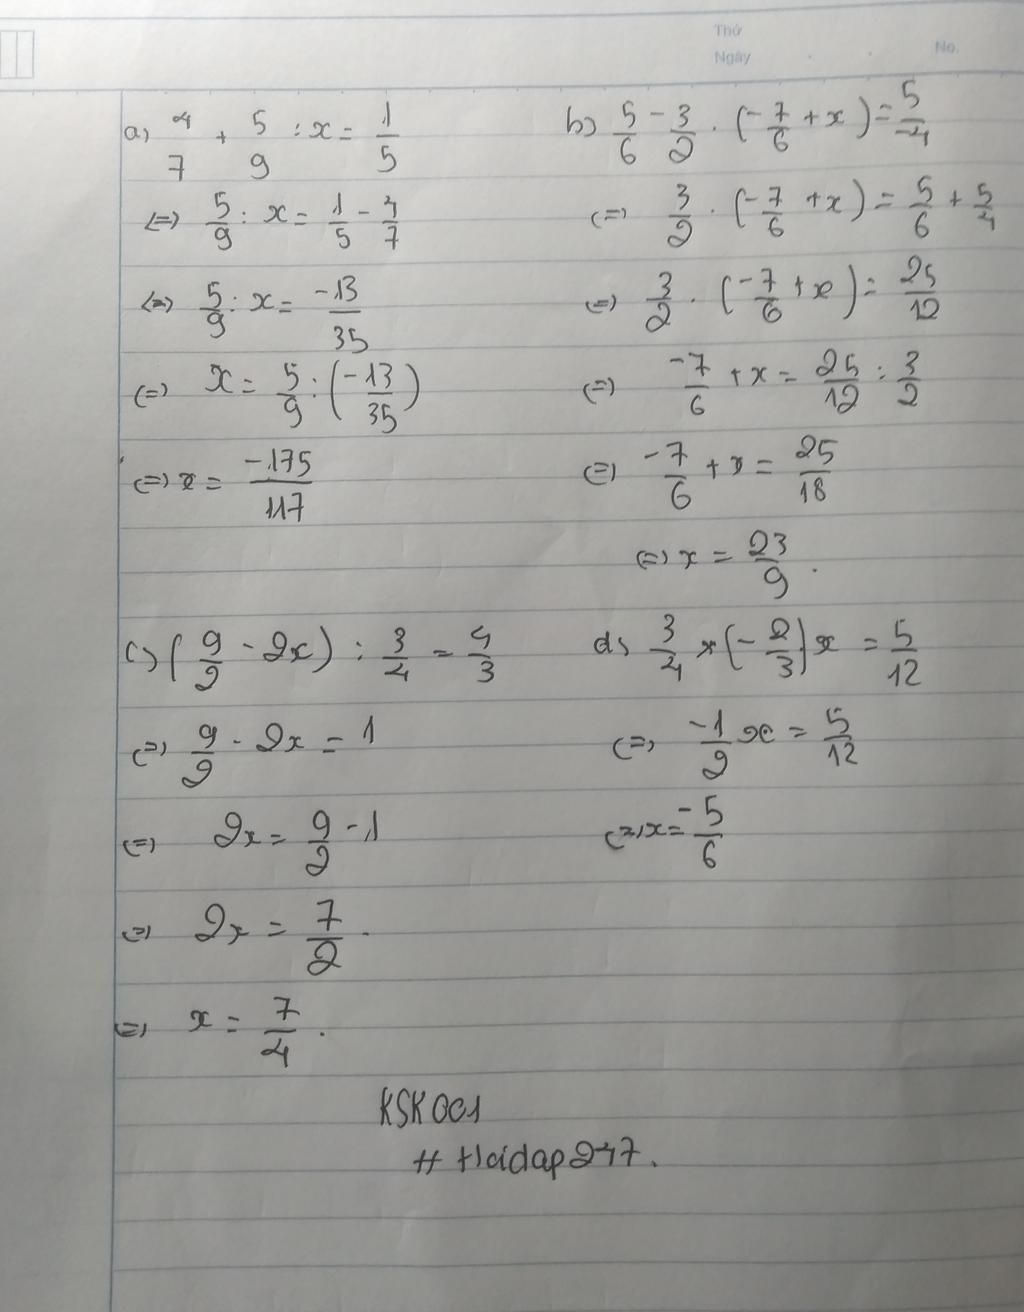 Thứ
Ngày
No.
a) 4/7 + 5/9 : x = 1/5
(=) 5/9 : x = 1/5 - 4/7
(=) 5/9 : x = -13/35
(=) x = 5/9 : (-13/35)
(=) x = -175/117
b) 5/6 - 3/2 . (-7/6 + x) = 5/-4
(=) 3/2 . (-7/6 + x) = 5/6 + 5/4
(=) 3/2 . (-7/6 + x) = 25/12
(=) -7/6 + x = 25/12 : 3/2
(=) -7/6 + x = 25/18
(=) x = 23/9 .
c) (9/2 - 2x) : 3/4 = 4/3
(=) 9/2 - 2x = 1
(=) 2x = 9/2 - 1
(=) 2x = 7/2 .
(=) x = 7/4 .
d) 3/4 x (-2/3) x = 5/12
(=) -1/2 x = 5/12
(=) x = -5/6
KSK001
# Hoidap247.